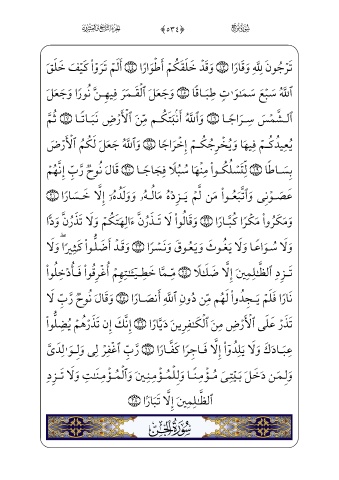 سُورَةُ نُوحٍ ﴿٥٣٤﴾ الجُزْءُ التَّاسِعُ وَالعِشْرُونَ
تَرْجُونَ لِلَّهِ وَقَارًا ۝١٣ وَقَدْ خَلَقَكُمْ أَطْوَارًا ۝١٤ أَلَمْ تَرَوْا۟ كَيْفَ خَلَقَ
ٱللَّهُ سَبْعَ سَمَـٰوَٰتٍ طِبَاقًا ۝١٥ وَجَعَلَ ٱلْقَمَرَ فِيهِنَّ نُورًا وَجَعَلَ
ٱلشَّمْسَ سِرَاجًا ۝١٦ وَٱللَّهُ أَنۢبَتَكُم مِّنَ ٱلْأَرْضِ نَبَاتًا ۝١٧ ثُمَّ
يُعِيدُكُمْ فِيهَا وَيُخْرِجُكُمْ إِخْرَاجًا ۝١٨ وَٱللَّهُ جَعَلَ لَكُمُ ٱلْأَرْضَ
بِسَاطًا ۝١٩ لِّتَسْلُكُوا۟ مِنْهَا سُبُلًا فِجَاجًا ۝٢٠ قَالَ نُوحٌ رَّبِّ إِنَّهُمْ
عَصَوْنِى وَٱتَّبَعُوا۟ مَن لَّمْ يَزِدْهُ مَالُهُۥ وَوَلَدُهُۥٓ إِلَّا خَسَارًا ۝٢١
وَمَكَرُوا۟ مَكْرًا كُبَّارًا ۝٢٢ وَقَالُوا۟ لَا تَذَرُنَّ ءَالِهَتَكُمْ وَلَا تَذَرُنَّ وَدًّا
وَلَا سُوَاعًا وَلَا يَغُوثَ وَيَعُوقَ وَنَسْرًا ۝٢٣ وَقَدْ أَضَلُّوا۟ كَثِيرًا ۖ وَلَا
تَزِدِ ٱلظَّـٰلِمِينَ إِلَّا ضَلَـٰلًا ۝٢٤ مِّمَّا خَطِيٓـَٔـٰتِهِمْ أُغْرِقُوا۟ فَأُدْخِلُوا۟
نَارًا فَلَمْ يَجِدُوا۟ لَهُم مِّن دُونِ ٱللَّهِ أَنصَارًا ۝٢٥ وَقَالَ نُوحٌ رَّبِّ لَا
تَذَرْ عَلَى ٱلْأَرْضِ مِنَ ٱلْكَـٰفِرِينَ دَيَّارًا ۝٢٦ إِنَّكَ إِن تَذَرْهُمْ يُضِلُّوا۟
عِبَادَكَ وَلَا يَلِدُوٓا۟ إِلَّا فَاجِرًا كَفَّارًا ۝٢٧ رَّبِّ ٱغْفِرْ لِى وَلِوَٰلِدَىَّ
وَلِمَن دَخَلَ بَيْتِىَ مُؤْمِنًا وَلِلْمُؤْمِنِينَ وَٱلْمُؤْمِنَـٰتِ وَلَا تَزِدِ
ٱلظَّـٰلِمِينَ إِلَّا تَبَارًۢا ۝٢٨
سُورَةُ الجِنِّ